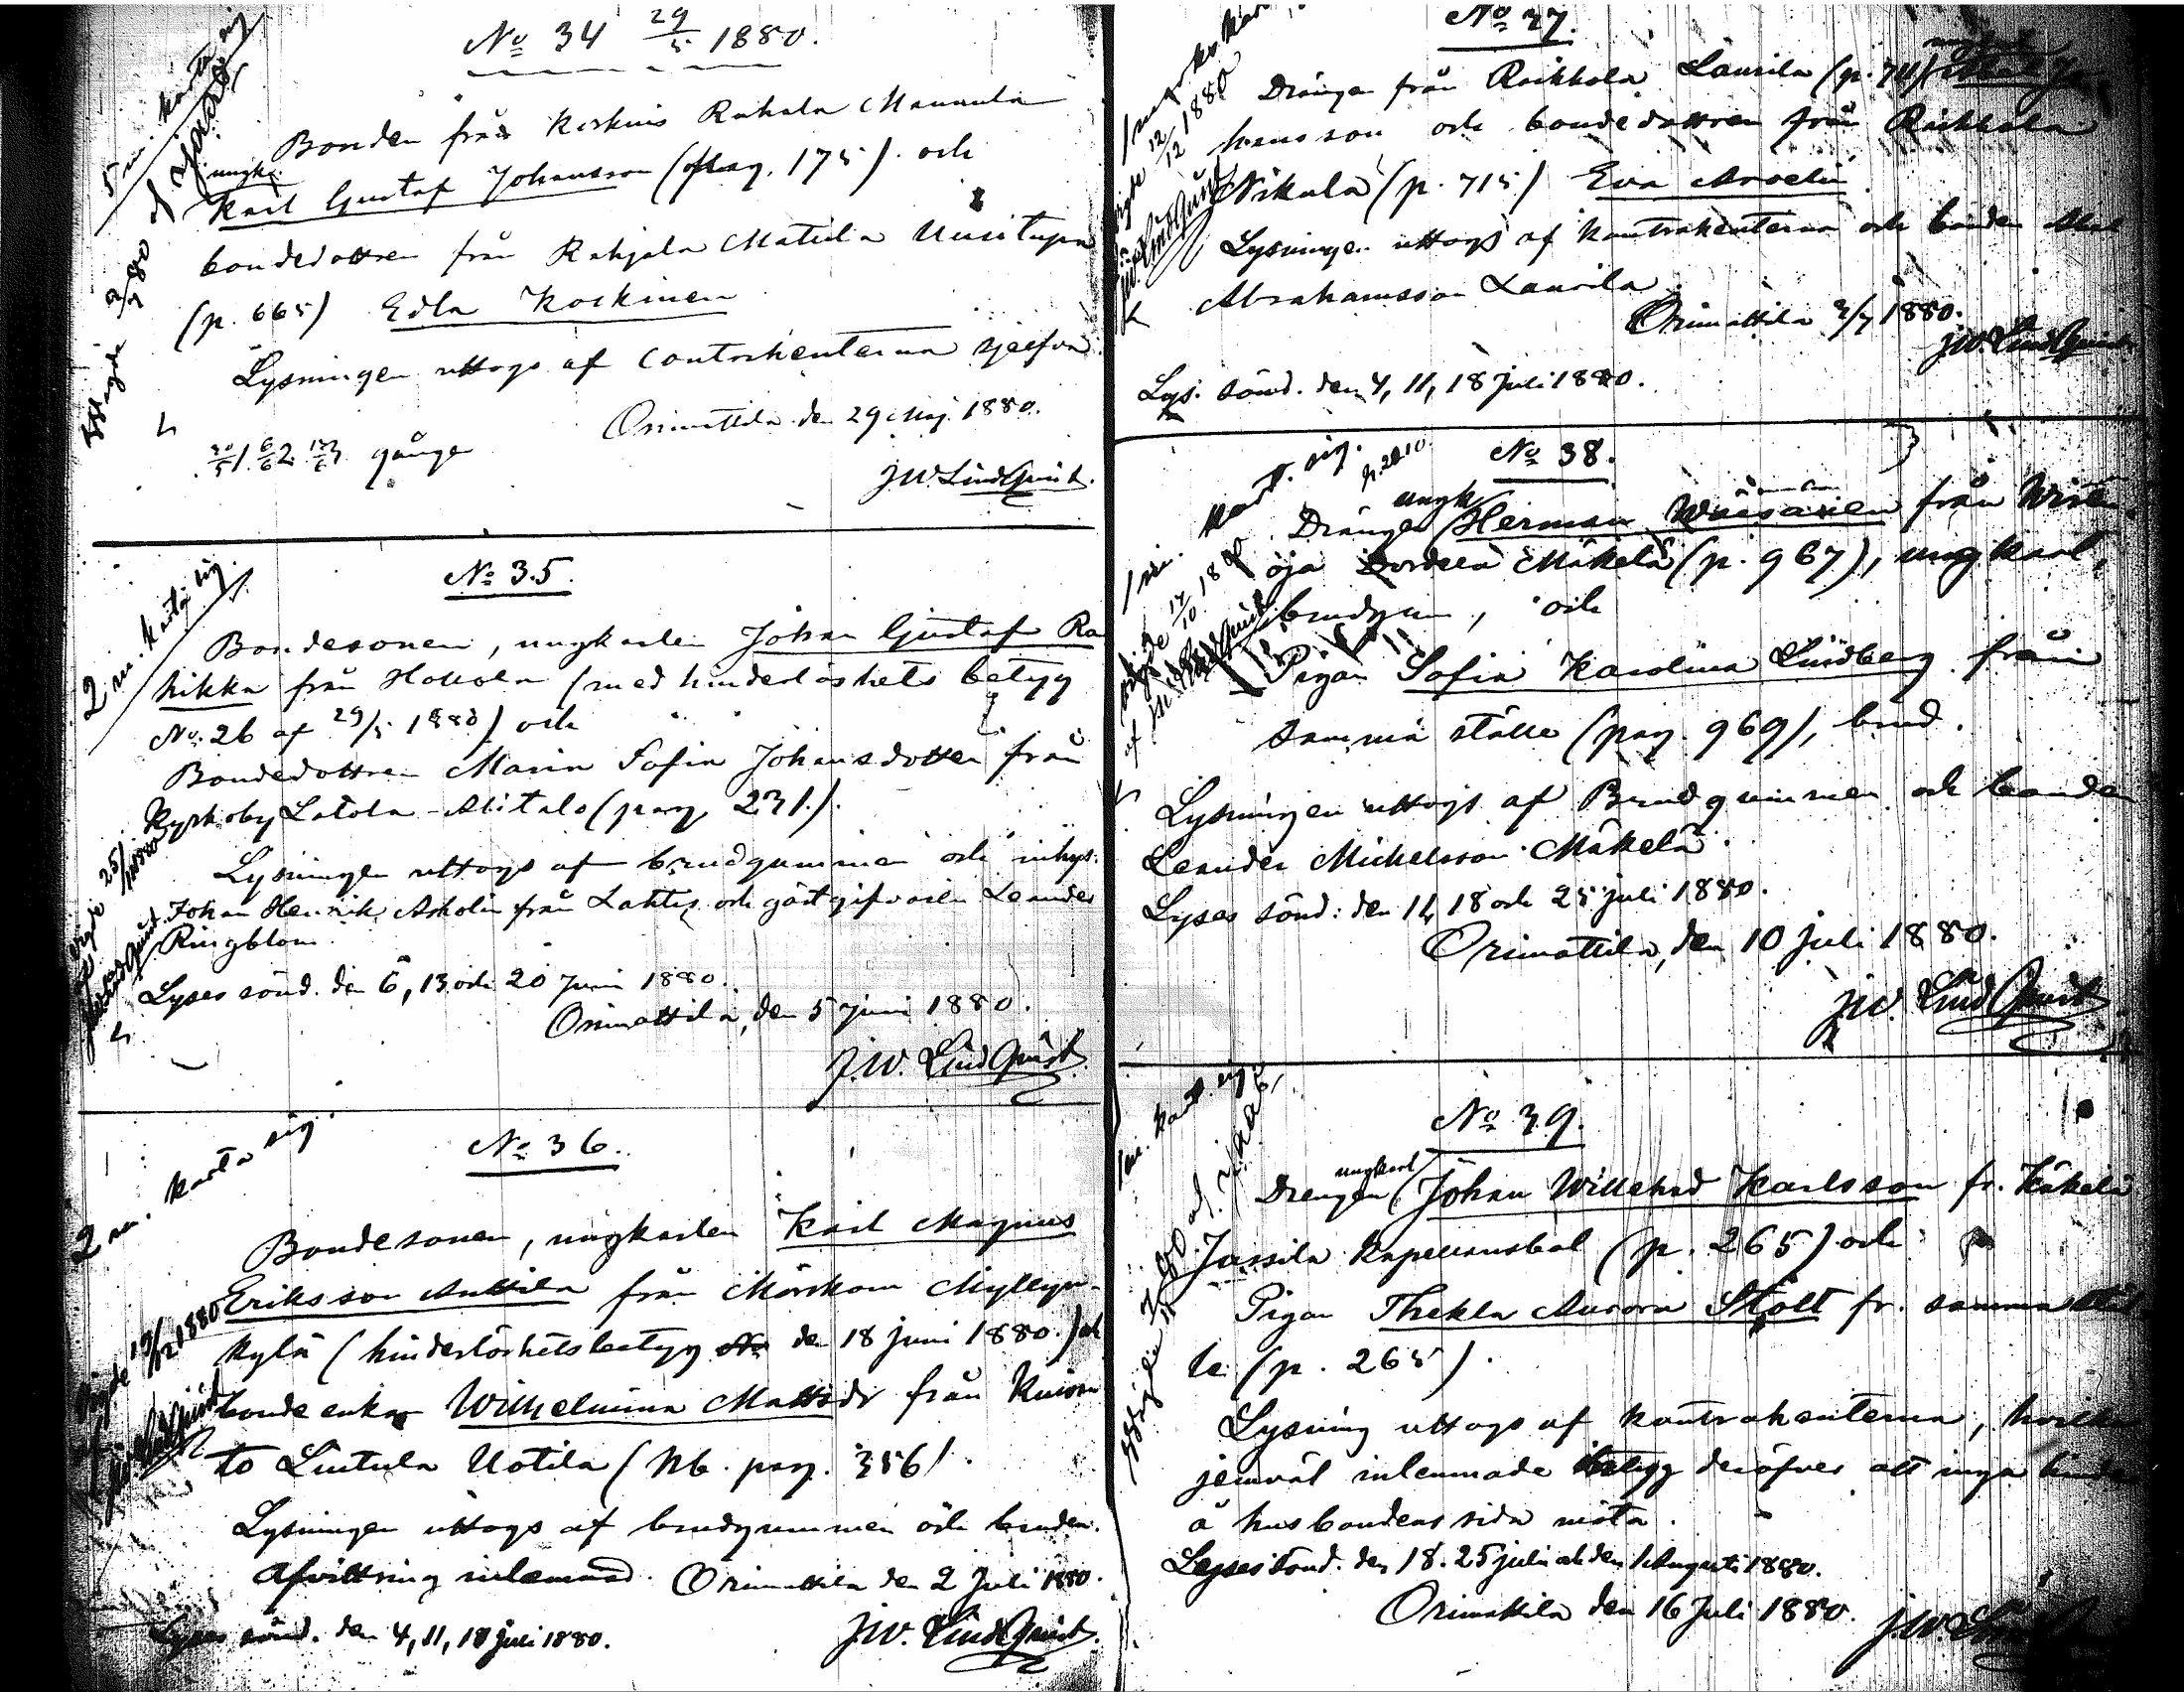 No 34 29/5 1880.
Bonden från Keskis Rahala Mannula
ungk.
Karl Gustaf Johansson (pag. 175). och
bondedottren från Rahjala Matula Uusitupa
(p. 665) Edla Koskinen
Lysningen uttogs af contrahenterna sjelfva.
Orimattila den 29 Maj 1880.
30/5 1. 6/6 2. 13/6 3 gånge
J.W. Lindqvist.
5 m. karta sig
No 35.
Bondesonen, ungkarlen Johan Gustaf Ra
hikka från Hollola (med hinderlöshets betyg
No. 26 af 29/5 1880) och
Bondedottren Maria Sofia Johansdotter från
Kyrkoby Latola-Alitalo (pag. 231.).
Lysningen uttogs af brudgummen och inhys:
Johan Henrik Askolin från Lahtis och gästgifvaren Leander
Ringblom.
Lyses sönd. den 6, 13 och 20 Juni 1880.
Orimattila, den 5 Juni 1880.
J.W. Lindqvist
2 m. karta sig.
No 36.
Bondesonen, ungkarlen Karl Magnus
Eriksson Anttila från Mörskom Myllyn-
kylä (hinderlöshetsbetyg den 18 juni 1880.) och
bondeenkan Wilhelmina Mattsdr från Kuiva
to Lintula Uotila (Nb. pag. 356).
Lysningen uttogs af brudgummen och bruden.
Afvittring inlemnad. Orimattila den 2 Juli 1880.
Lyses sönd. den 4, 11, 18 juli 1880.
J.W. Lindqvist.
2 m. karta sig.
Vigde 19/12 1880
No 37.
Drängen från Räikkölä Laurila (p. 741)
hansson och bondedottren från Räikkölä
Nikula (p. 715) Eva
Lysningen uttogs af kontrahenterna och bonden
Abrahamsson Laurila.
Orimattila 2/7 1880.
J.W. Lindqvist
Lys. sönd. den 4, 11, 18 Juli 1880.
12/12 1880
No 38.
ungk
Drängen Herman Wäisänen från Wiren
oja Mäkelä (p. 967), ungkarl,
brudgum, och
Pigan Sofia Karolina Lindberg från
samma ställe (pag. 969), brud.
Lysningen uttogs af Brudgummen och bonden
Leander Michelsson Mäkelä.
Lyses sönd: den 11, 18 och 25 juli 1880.
Orimattila, den 10 Juli 1880.
J.W. Lindqvist
No 39.
ungkarl
Drengen Johan Willehad Karlsson fr. Käkelä
Jassila Kapellansbol (p. 265) och
Pigan Thekla Aurora Stolt fr. samma stäl
le (p. 265).
Lysning uttogs af kontrahenterna, hvilka
jemväl inlemnade betyg deröfver att inga hinder
å husbondens sida möta.
Lyses sönd. den 18. 25 juli och den 1 Augusti 1880.
Orimattila den 16 Juli 1880.